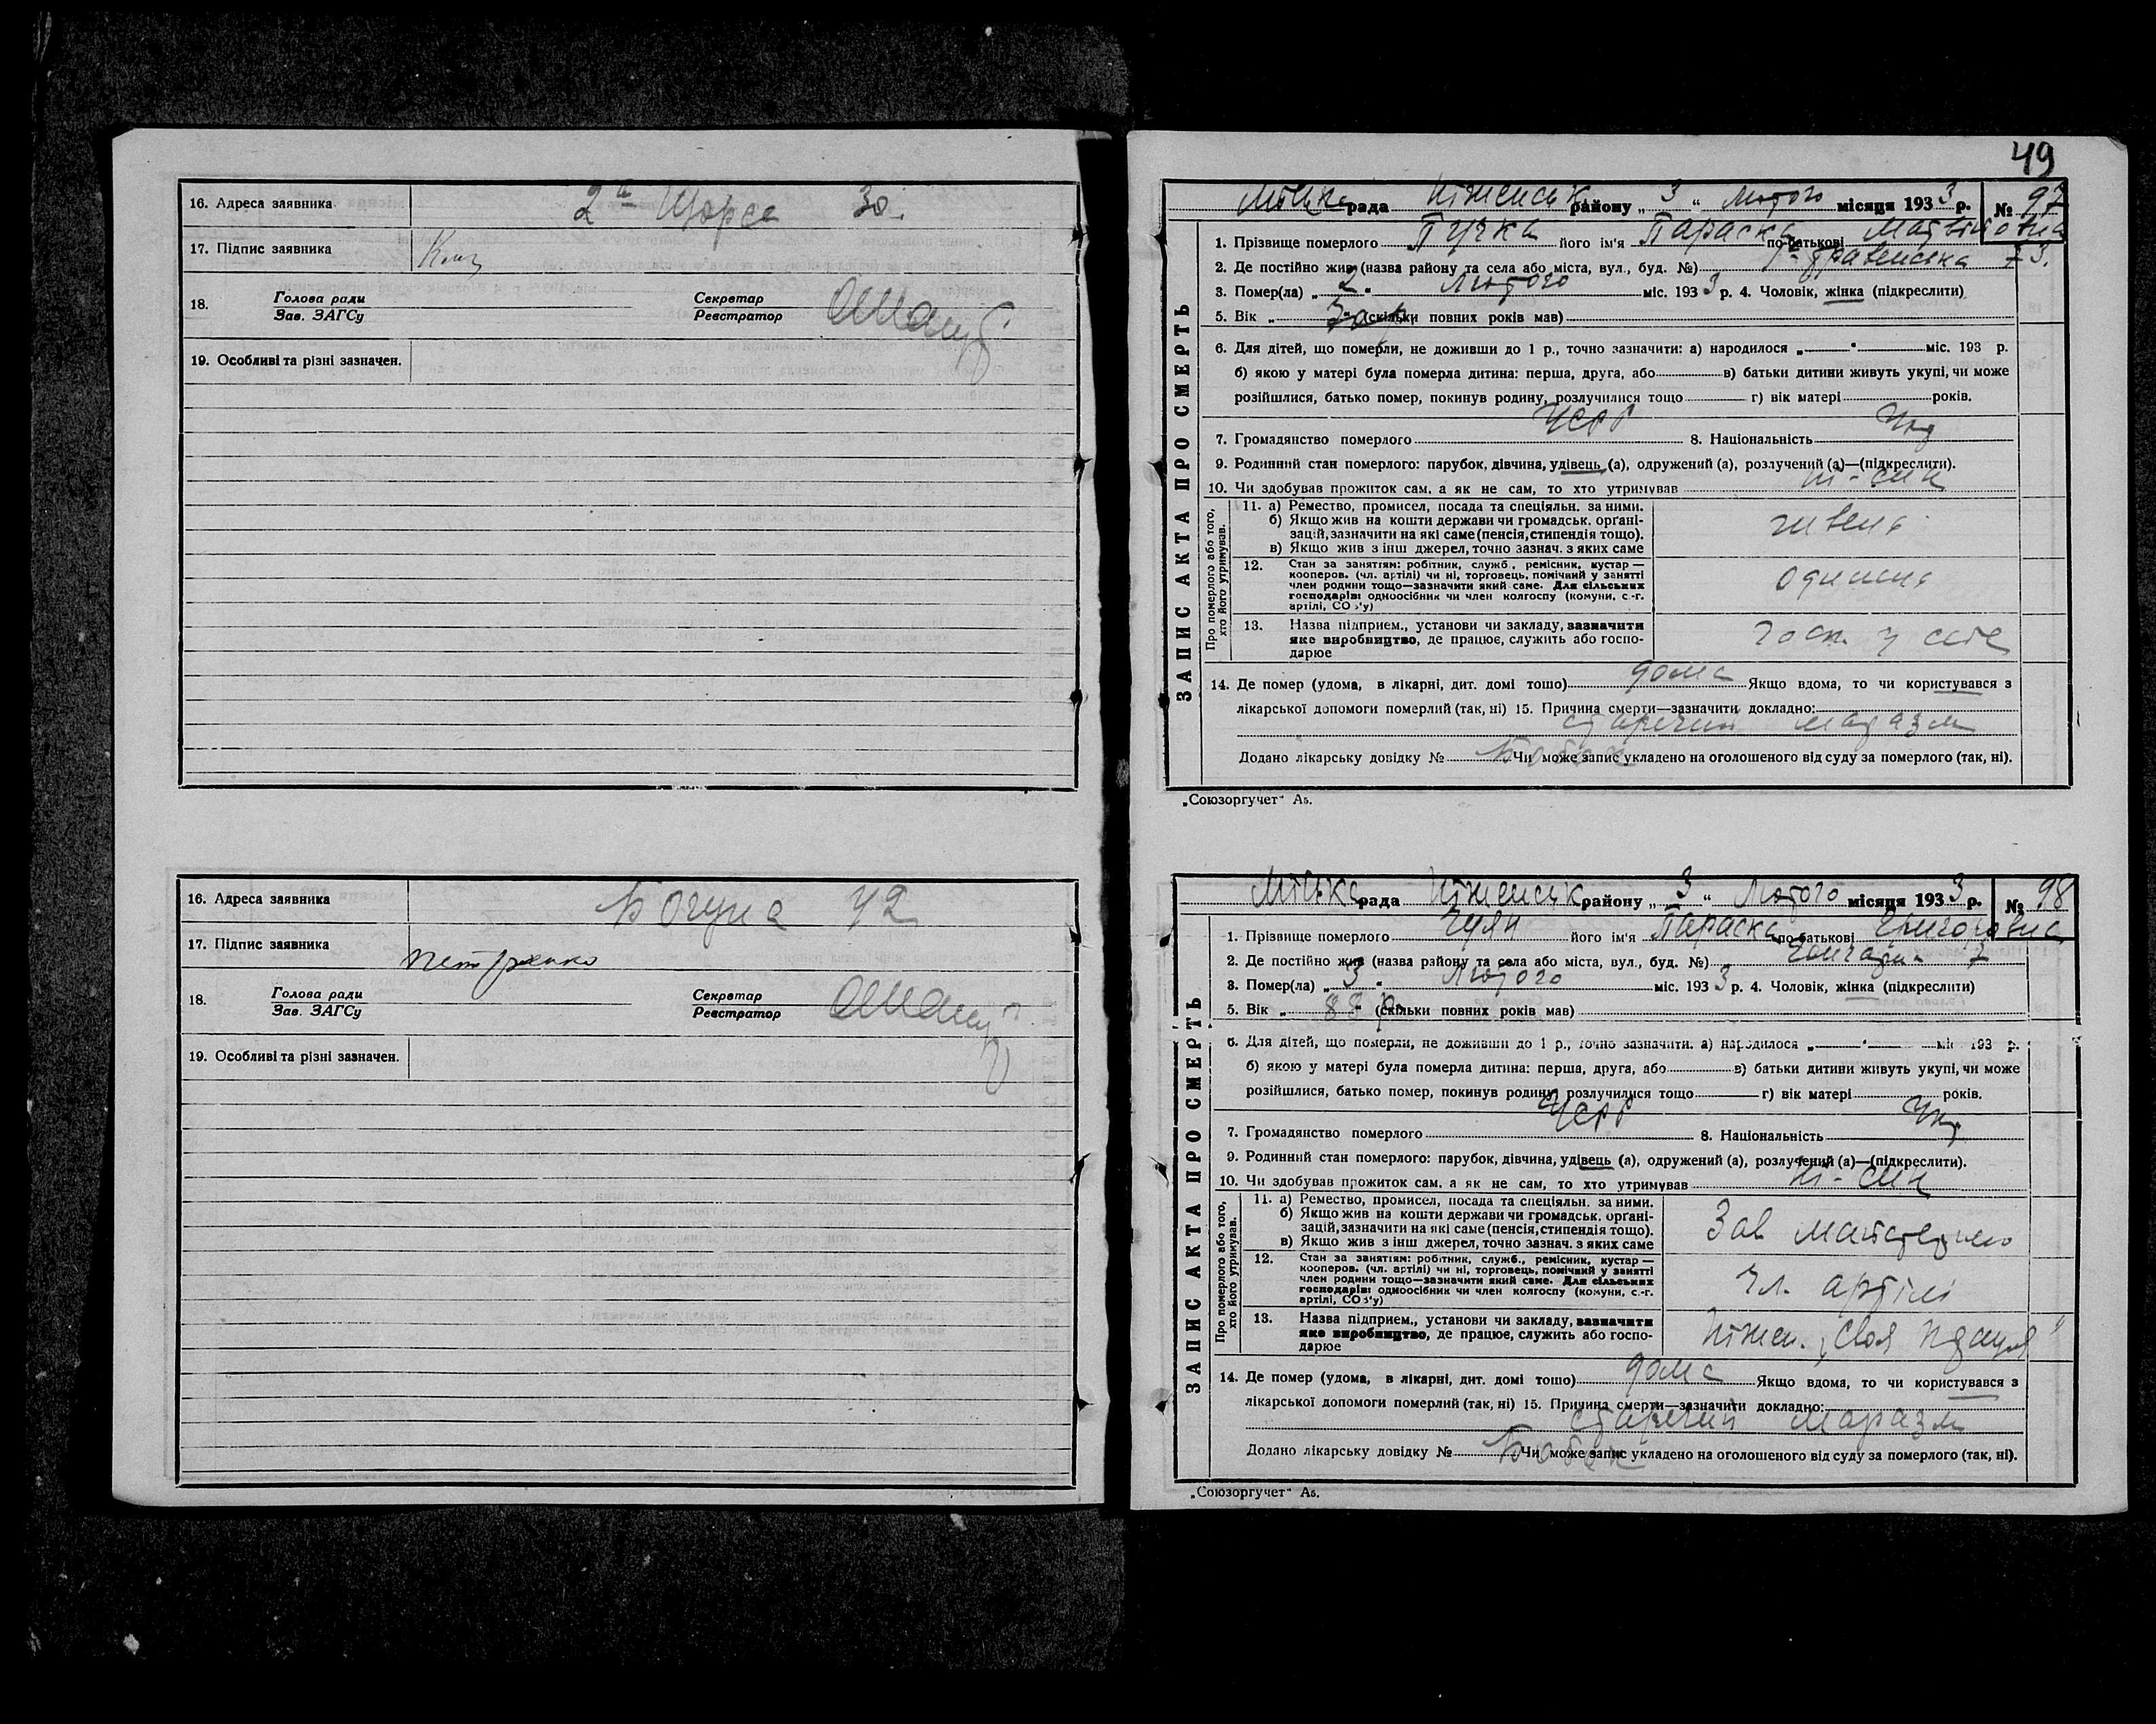 16. Адреса заявника 2а Щорса 30.
17. Підпис заявника
18. Голова ради Секретар
Зав. ЗАГСу Реєстратор
19. Особливі та різні зазначен.
16. Адреса заявника Богуна 42
17. Підпис заявника Петренко
18. Голова ради Секретар
Зав. ЗАГСу Реєстратор
19. Особливі та різні зазначен.
49
Міська рада Ніженськ району „ 3 “ Лютого місяця 193 3 р. № 97
ЗАПИС АКТА ПРО СМЕРТЬ
1. Прізвище померлого Пучка його ім'я Параска по батькові
2. Де постійно жив (назва району та села або міста, вул., буд. №) 73.
3. Помер(ла) „ 2 “ Лютого міс. 193 3 р. 4. Чоловік, жінка (підкреслити)
5. Вік „ “ (скільки повних років мав)
6. Для дітей, що померли, не доживши до 1 р., точно зазначити: а) народилося „ “ міс. 193 р.
б) якою у матері була померла дитина: перша, друга, або в) батьки дитини живуть укупі, чи може
розійшлися, батько помер, покинув родину, розлучилися тощо г) вік матері років.
7. Громадянство померлого УСРР 8. Національність Укр
9. Родинний стан померлого: парубок, дівчина, удівець (а), одружений (а), розлучений (а)—(підкреслити).
10. Чи здобував прожиток сам, а як не сам, то хто утримував ні - син
Про померлого або того, хто його утримував.
11. а) Ремество, промисел, посада та спеціяльн. за ними.
б) Якщо жив на кошти держави чи громадськ. орґані-
зацій, зазначити на які саме (пенсія, стипендія тощо).
в) Якщо жив з інш джерел, точно зазнач. з яких саме
12. Стан за заняттям: робітник, служб., ремісник, кустар —
кооперов. (чл. артілі) чи ні, торговець, помічний у занятті
член родини тощо—зазначити який саме. Для сільських
господарів: одноосібник чи член колгоспу (комуни, с.-г.
артілі, СОЗ'у)
13. Назва підприєм., установи чи закладу, зазначити
яке виробництво, де працює, служить або госпо-
дарює
госп. у себе
14. Де помер (удома, в лікарні, дит. домі тощо) дома Якщо вдома, то чи користувався з
лікарської допомоги померлий (так, ні) 15. Причина смерти—зазначити докладно:
старечий маразм
Додано лікарську довідку № Чи може запис укладено на оголошеного від суду за померлого (так, ні).
„Союзоргучет“ А5.
Міська рада Ніженськ району „ 3 “ Лютого місяця 193 3 р. № 98
ЗАПИС АКТА ПРО СМЕРТЬ
1. Прізвище померлого його ім'я Параска по батькові Григоровна
2. Де постійно жив (назва району та села або міста, вул., буд. №) 7
3. Помер(ла) „ 3 “ Лютого міс. 193 3 р. 4. Чоловік, жінка (підкреслити)
5. Вік „ 88 р. “ (скільки повних років мав)
6. Для дітей, що померли, не доживши до 1 р., точно зазначити: а) народилося „ “ міс 193 р.
б) якою у матері була померла дитина: перша, друга, або в) батьки дитини живуть укупі, чи може
розійшлися, батько помер, покинув родину, розлучилися тощо г) вік матері років.
7. Громадянство померлого УСРР 8. Національність Укр.
9. Родинний стан померлого: парубок, дівчина, удівець (а), одружений (а), розлучений (а)—(підкреслити).
10. Чи здобував прожиток сам, а як не сам, то хто утримував ні - син
Про померлого або того, хто його утримував.
11. а) Ремество, промисел, посада та спеціяльн. за ними.
б) Якщо жив на кошти держави чи громадськ. орґані-
зацій, зазначити на які саме (пенсія, стипендія тощо).
в) Якщо жив з інш джерел, точно зазнач. з яких саме
Зав майстернею
12. Стан за заняттям: робітник, служб., ремісник, кустар —
кооперов. (чл. артілі) чи ні, торговець, помічний у занятті
член родини тощо—зазначити який саме. Для сільських
господарів: одноосібник чи член колгоспу (комуни, с.-г.
артілі, СОЗ'у)
чл. артілі
13. Назва підприєм., установи чи закладу, зазначити
яке виробництво, де працює, служить або госпо-
дарює
Ніжен. „Своя праця“
14. Де помер (удома, в лікарні, дит. домі тощо) дома Якщо вдома, то чи користувався з
лікарської допомоги померлий (так, ні) 15. Причина смерти—зазначити докладно:
старечий маразм
Додано лікарську довідку № Чи може запис укладено на оголошеного від суду за померлого (так, ні).
„Союзоргучет“ А5.